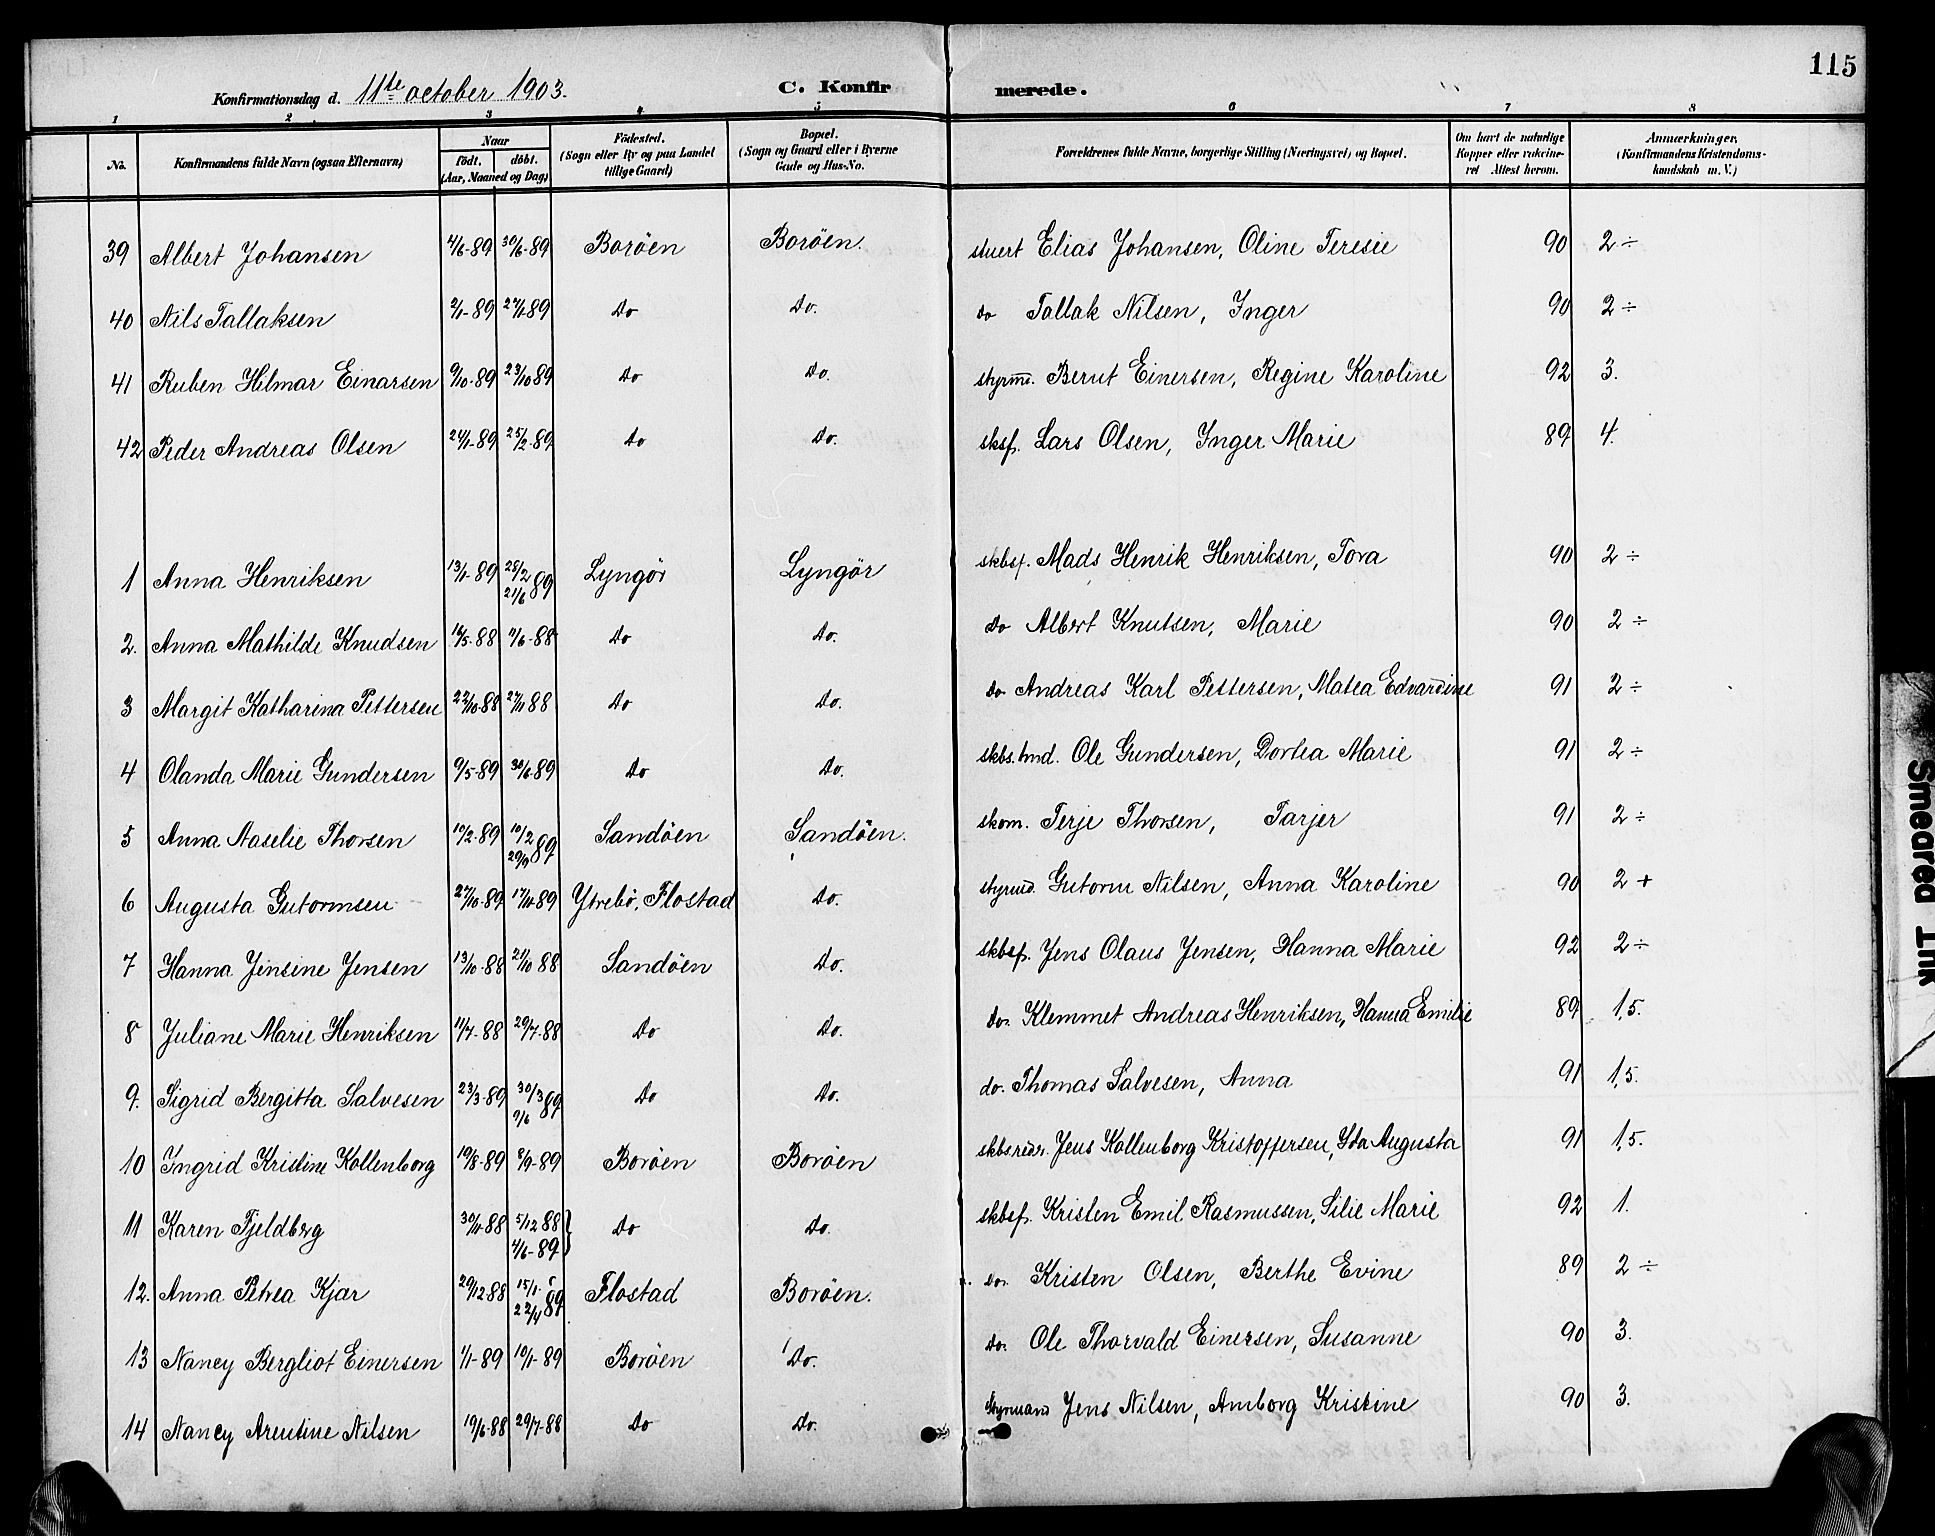 115
Konfirmationsdag d. 11te october 1903. C. Konfirmerede.
1 2 3 4 5 6 7 8
No. Konfirmandens fulde Navn (ogsaa Efternavn) Naar födt. döbt. (Aar, Maaned og Dag) Födested. (Sogn eller By og paa Landet tillige Gaard) Bopæl. (Sogn og Gaard eller i Byerne Gade og Hus-No. Forældrenes fulde Navne, borgerlige Stilling (Næringsvei) og Bopæl. Om havt de naturlige Kopper eller vakcineret Attest herom. Anmærkninger, (Konfirmandens Kristendomskundskab m. V.)
39 Albert Johansen 4/6-89 30/6-89 Boröen Boröen. stuert Elias Johansen, Oline Teresie 90 2 ÷
40 Nils Tallaksen 2/1-89 27/1-89 Do Do. Do Tallak Nilsen, Inger 90 2 ÷
41 Ruben Hilmar Einarsen 9/10-89 23/10 89 Do Do. styrm. Bernt Einersen, Regine Karoline 92 3.
42 Peder Andreas Olsen 24/1-89 25/2-89 Do Do. sksf. Lars Olsen, Inger Marie 89 4.
1 Anna Henriksen 13/1-89 28/2 21/6 89 Lyngör Lyngör skbsf. Mads Henrik Henriksen, Tora 90 2 ÷
2. Anna Mathilde Knudsen 16/5-88 7/6-88 Do Do. Do Albert Knutsen, Marie 90 2 ÷
3 Margit Katharina Pettersen 22/10-88 27/11 88 Do Do. Do Andreas Karl Pettersen, Matea Edvardine 91 2 ÷
4 Olanda Marie Gundersen 9/5-89 30/6-89 Do Do. skbs.tmd. Ole Gundersen, Dortea Marie 91 2 ÷
5 Anna Aaselie Thorsen 10/2-89 10/2 29/9 89 Sandöen Sandöen. skom. Terje Thorsen, Tarjer 91 2 ÷
6 Augusta Gutormsen 27/10-89 17/11-89 Ytrebö, Flostad Do. styrmd. Gutorm Nilsen, Anna Karoline 90 2 +
7 Hanna Jensine Jensen 13/10-88 21/10 88 Sandöen Do. skbsf. Jens Olaus Jensen, Hanna Marie 92 2 ÷
8 Juliane Marie Henriksen 11/7-88 29/7-88 Do Do. Do. Klemmet Andreas Henriksen, Hanna Emilie 89 1,5.
9. Sigrid Bergitta Salvesen 23/3-89 30/3 9/6 89 Do Do. do. Thomas Salvesen, Anna 91 1,5.
10 Ingrid Kristine Kollenborg 19/8-89 8/9-89 Boröen Boröen skbsredr. Jens Kollenborg Kristoffersen, Ida Augusta 91 1,5.
11 Karen Fjeldberg 30/11-88 5/12 88 4/6-89 } Do Do. skbsf. Kristen Emil Rasmussen, Silie Marie 92 1.
12. Anna Petrea Kjær 29/12-88 15/1 22/4 89 Flostad Boröen. Do. Kristen Olsen, Berthe Evine 89 2 ÷
13 Nancy Bergliot Einersen 1/1-89 10/1-89 Boröen Do. Do. Ole Thorvald Einersen, Susanne 90 3.
14 Nancy Arentine Nilsen 19/6-88 29/7-88 Do Do. Styrmand Jens Nilsen, Amborg Kristine 90 3.
Smeared Ink